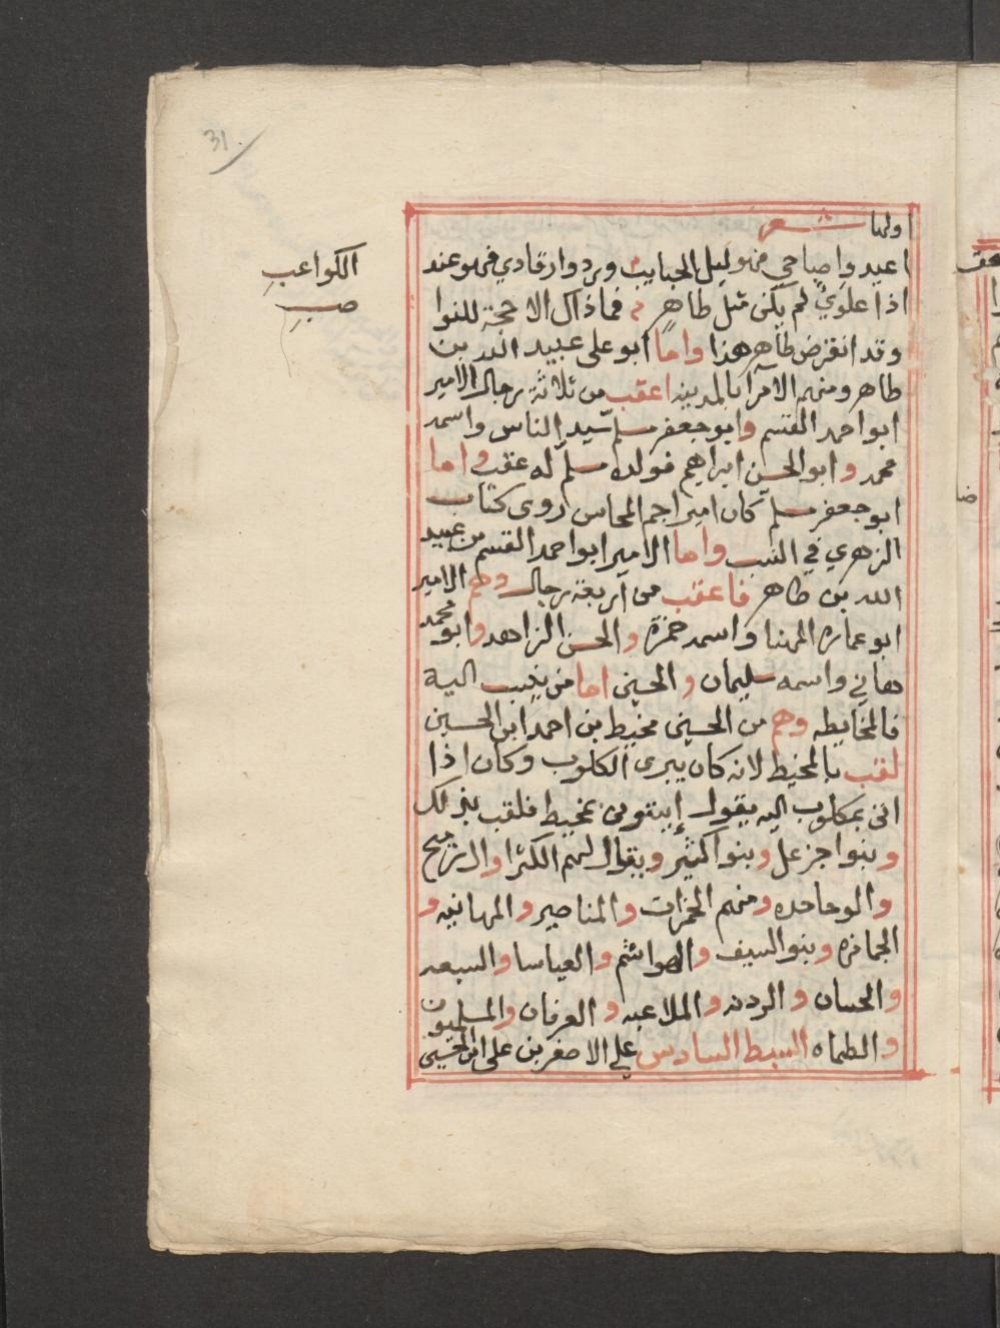 31
اولها شعر
اعيد واصباحي فهو ليل الحبايب وردوا رقادي فهو عند
الكواعب
صب
اذا علوي لم يكن مثل طاهر فما ذاك الا حجة للنوا
وقد انقرض طاهر هذا واما ابو على عبيد الله بن
طاهر ومنهم الامرآ بالمدينه اعقب من ثلاثة رجال الامير
ابو احمد القسم وابو جعفر مسلم سيد الناس واسمه
محمد وابو الحسن ابراهيم فولده مسلم له عقب واما
ابو جعفر مسلم كان اميرا جم المحاسن روى كتاب
الزهري في النسب واما الامير ابو احمد القسم بن عبيد
الله بن طاهر فاعقب من اربعة رجال وهم الامير
ابو عماره المهنا واسمه حمزة والحسن الزاهد وابو محمد
هاني واسمه سليمان والحسين اما من ينسب اليه
فالمخايطه وهم من الحسين مخيط بن احمد ابن الحسين
لقب بالمخيط لانه كان يبرى الكلوب وكان اذا
اتى بمكلوب اليه يقول إيتوني بمخيط فلقب بذلك
وبنوا جزعل وبنوا كثير ويقال لهم الكثرا والرميح
والوحاحده ومنهم الحمزات والمناصير والمهانيه و
الجمازه وبنو السيف والهواشم والعياسا والسبعه
والحسان والردنه والملاعبه والعرفان والمسلميون
والطماه السبط السادس علي الاصغر بن على ابن الحسين